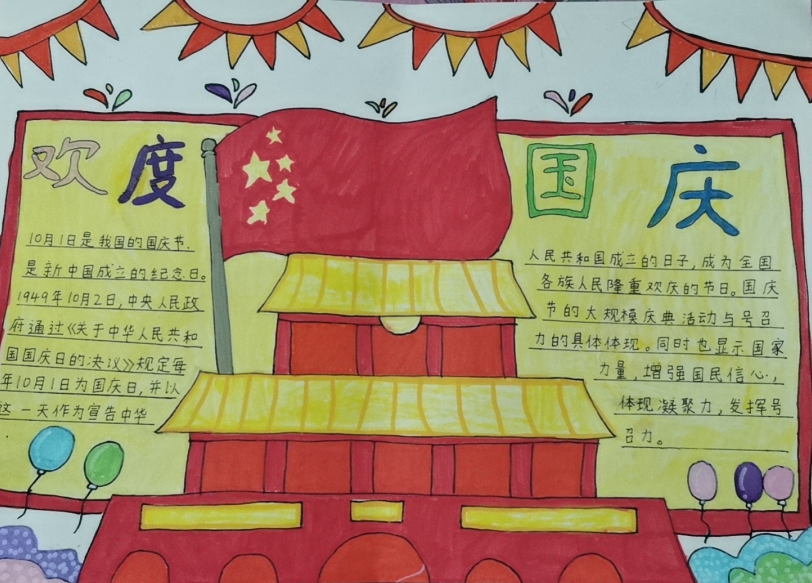 欢度
国庆
10月1日是我国的国庆节、
是新中国成立的纪念日。
1949年10月2日,中央人民政
府通过《关于中华人民共和
国国庆日的决议》规定每
年10月1日为国庆日,并以
这一天作为宣告中华
人民共和国成立的日子,成为全国
各族人民隆重欢庆的节日。国庆
节的大规模庆典活动与号召
力的具体体现。同时也显示国家
力量,增强国民信心,
体现凝聚力,发挥号
召力。